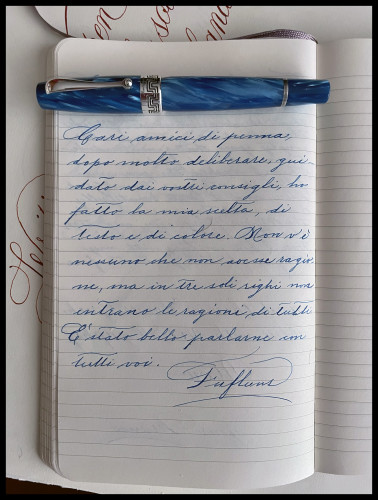 Cari amici, di penna,
dopo molto deliberare, gui-
dato dai vostri consigli, ho
fatto la mia scelta, di
testo e di colore. Non v'è
nessuno che non avesse ragio-
ne, ma in tre soli righi non
entrano le ragioni, di tutti
E' stato bello parlarne con
tutti voi.